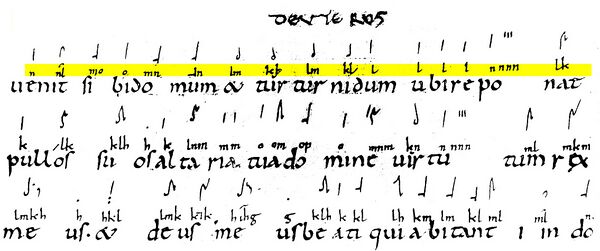 DEVTE RVS
n nl mo o mn ln lm kh lm kl l l l l n nnnn lk
uenit si bido mum & tur tur nidum u bi re po nat
k lk klh h k lnm mm o om op o mnm kn n nnn ml mkm
pullos su os al ta ria tua do mine uir tu tum rex
lmkh h hkl lmk kik hihg g klh k kl lh km lm kl ml ml n.
me us. & de us me us be ati qui a bitant i in do